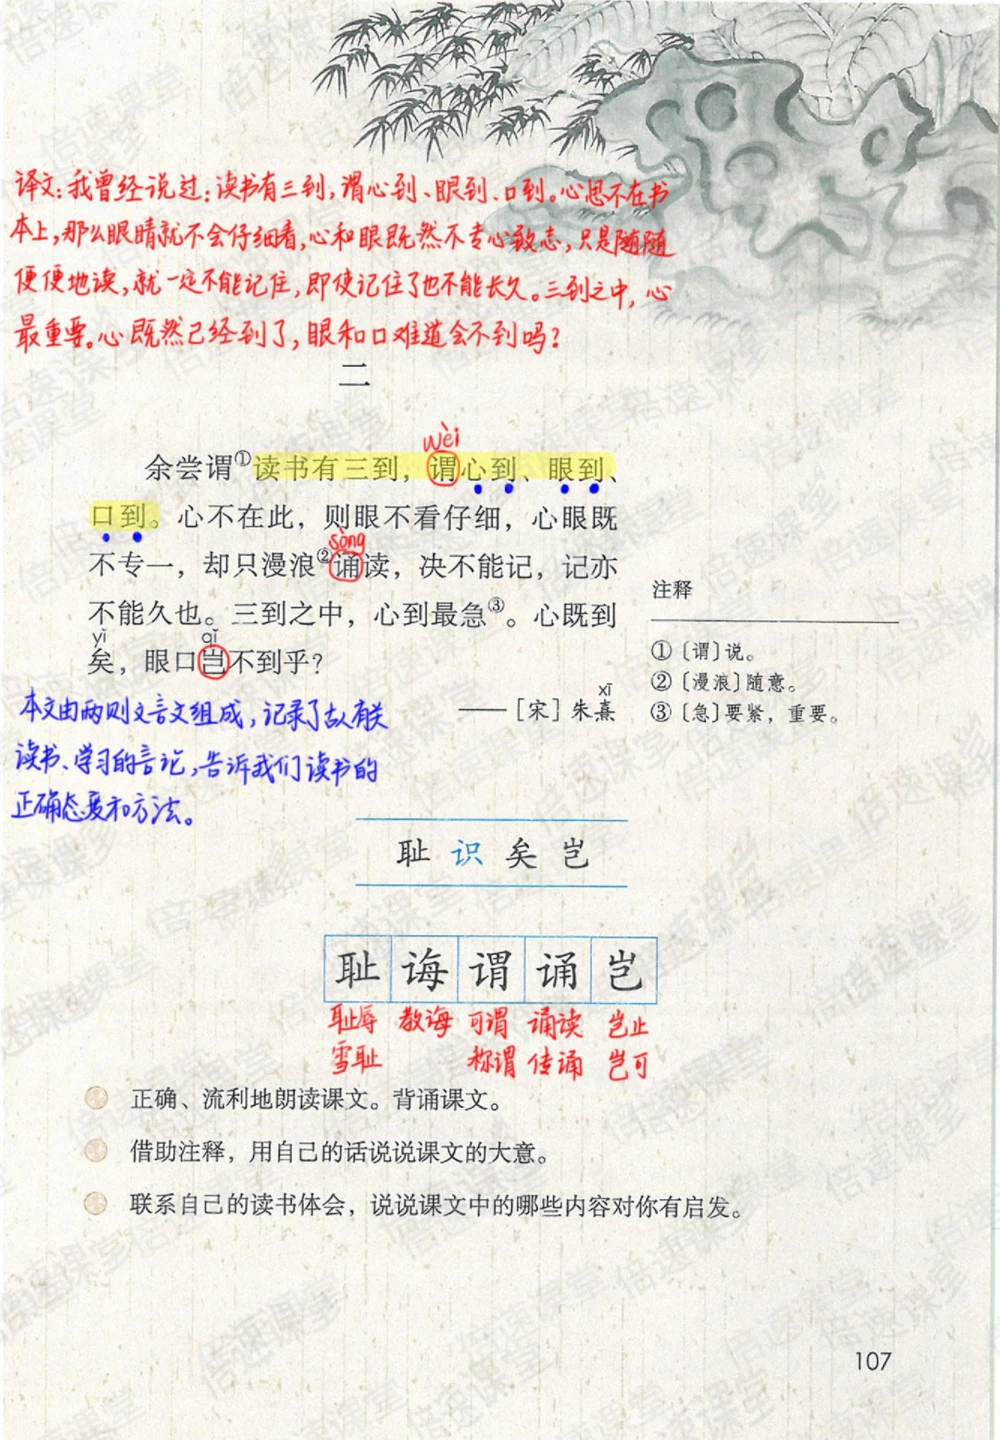 译文：我曾经说过：读书有三到，谓心到、眼到、口到。心思不在书
本上，那么眼睛就不会仔细看，心和眼既然不专心致志，只是随随
便便地读，就一定不能记住，即使记住了也不能长久。三到之中，心
最重要。心既然已经到了，眼和口难道会不到吗？
二
wèi
余尝谓①读书有三到，谓心到、眼到、
口到。心不在此，则眼不看仔细，心眼既
sòng
不专一，却只漫浪②诵读，决不能记，记亦
不能久也。三到之中，心到最急③。心既到
yǐ qǐ
矣，眼口岂不到乎？
xī
——［宋］朱熹
注释
①〔谓〕说。
②〔漫浪〕随意。
③〔急〕要紧，重要。
本文由两则文言文组成，记录了古人有关
读书、学习的言论，告诉我们读书的
正确态度和方法。
耻 识 矣 岂
耻 诲 谓 诵 岂
耻辱 教诲 可谓 诵读 岂止
雪耻 称谓 传诵 岂可
正确、流利地朗读课文。背诵课文。
借助注释，用自己的话说说课文的大意。
联系自己的读书体会，说说课文中的哪些内容对你有启发。
107
倍速课堂